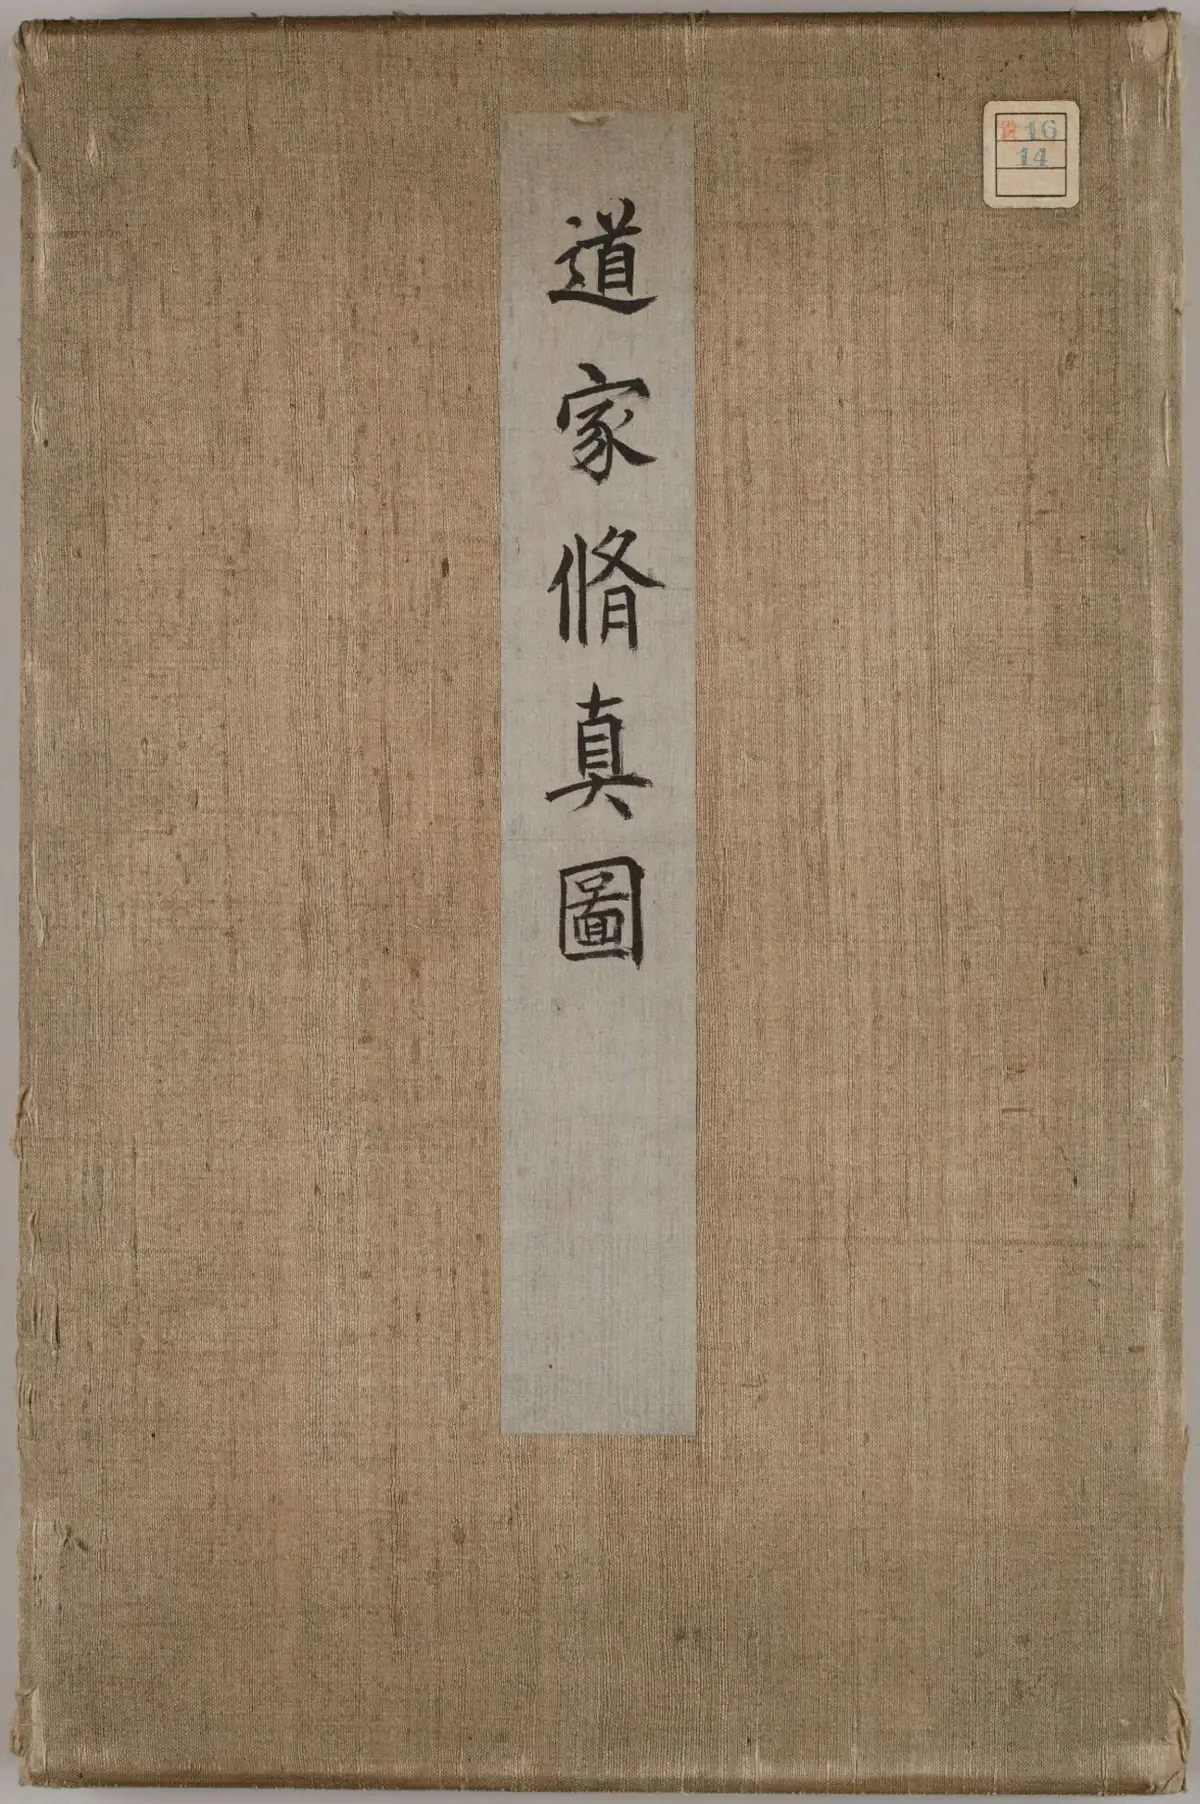 道家脩真圖
16
14